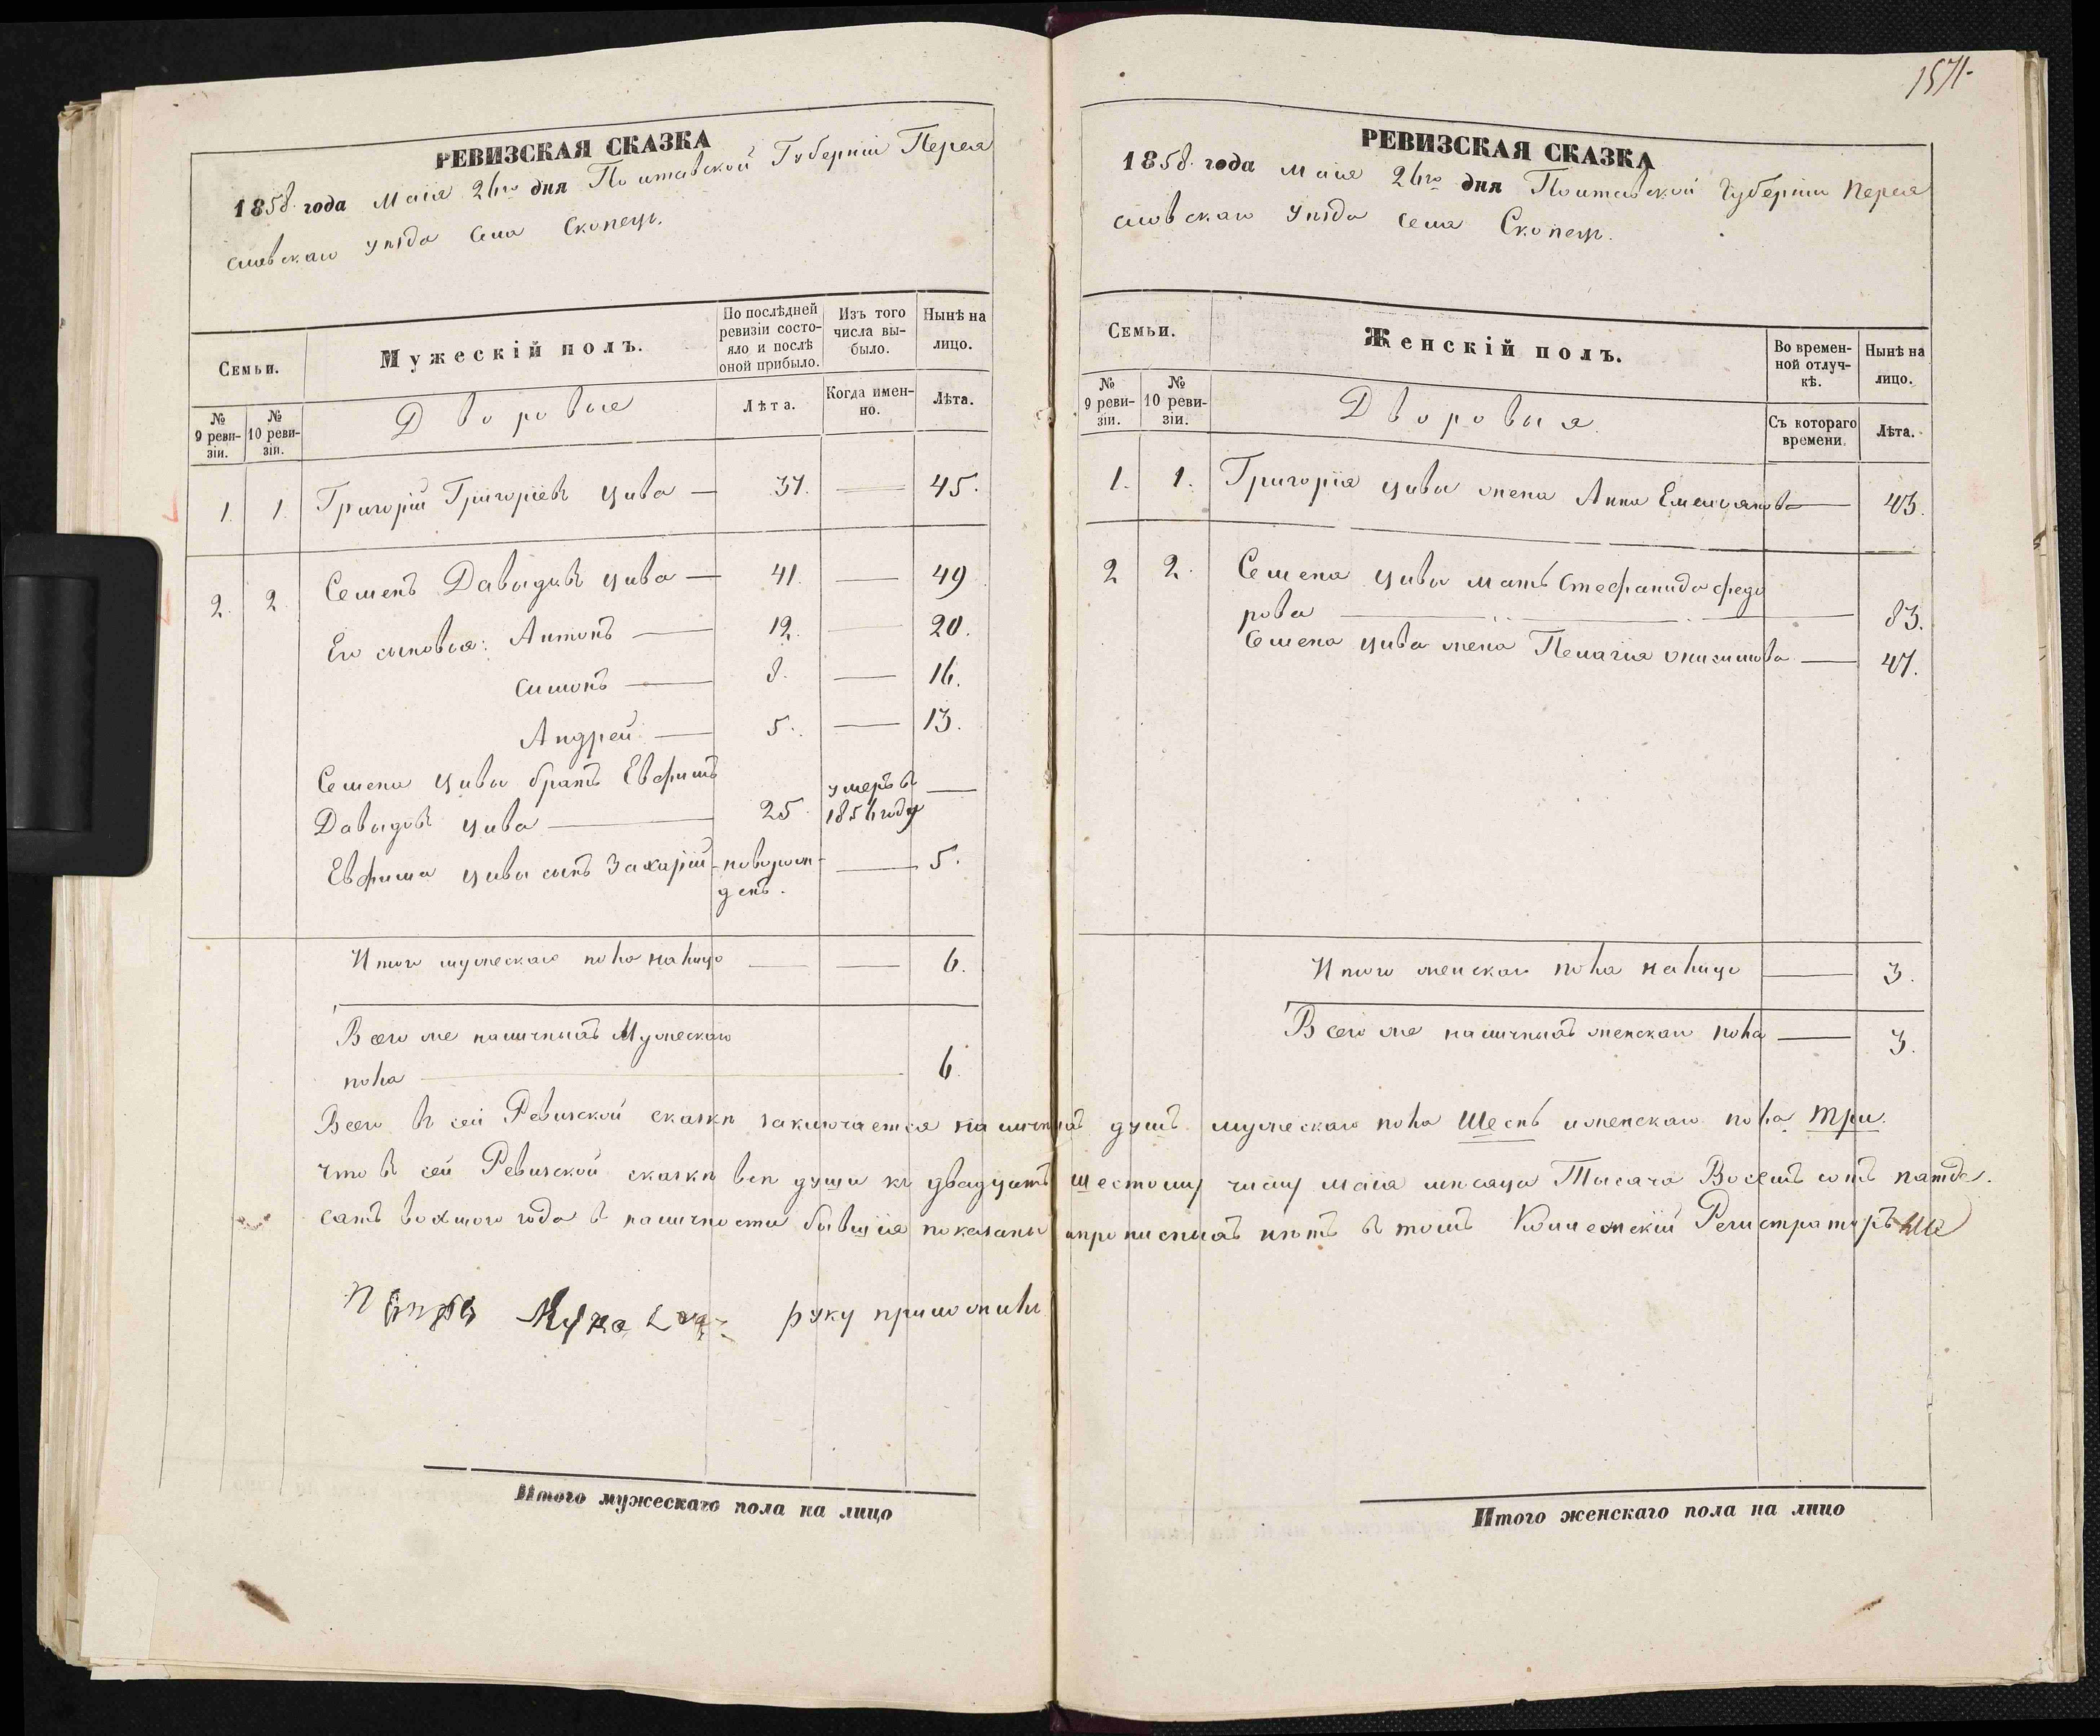 1571.
РЕВИЗСКАЯ СКАЗКА
1858. года Маія 26го дня Полтавской Губерніи Перея
славскаго уѣзда села Скопецъ.
Семьи.
Мужескій полъ.
По послѣдней ревизіи состояло и послѣ оной прибыло.
Изъ того числа выбыло.
Нынѣ на лицо.
№ 9 ревизіи.
№ 10 ревизіи.
Дворовые
Лѣта.
Когда именно.
Лѣта.
1. 1. Григорій Григоріевъ Цива — 37. — 45.
2. 2. Семенъ Давыдовъ Цива — 41. — 49
Его сыновья: Антонъ — 12. — 20.
Симонъ — 8. — 16.
Андрей — 5. — 13.
Семена Цивы братъ Евфимъ
Давыдовъ Цива — 25. умеръ въ 1856 году —
Евфима Цивы сынъ Захарій - новорожденъ. — 5.
Итого мужескаго пола налицо — — 6.
Всего же наличныхъ Мужескаго
пола — 6.
РЕВИЗСКАЯ СКАЗКА
1858. года Маія 26го дня Полтавской Губерніи Перея
славскаго уѣзда села Скопецъ.
Семьи.
Женскій полъ.
Во временной отлучкѣ.
Нынѣ на лицо.
№ 9 ревизіи.
№ 10 ревизіи.
Дворовыя.
Съ котораго времени.
Лѣта.
1. 1. Григорія Цивы жена Анна Емельянова — 43.
2 2. Семена Цивы мать Стефанида Федо
рова — 83.
Семена Цива жена Пелагія Онисимова — 47.
Итого женскаго пола налицо — 3.
Всего же наличныхъ женскаго пола — 3.
Всего въ сей Ревизской сказкѣ заключается наличныхъ душъ мужескаго пола Шесть и женскаго пола Три.
Что въ сей Ревизской сказкѣ всѣ души къ двадцать шестому числу маія мѣсяца Тысяча Восемъ сотъ пятде.
сятъ восмого года въ наличности бывшія показаны и прописныхъ нѣтъ въ томъ Коллежскій Регистраторъ
руку приложилъ
Итого мужескаго пола на лицо
Итого женскаго пола на лицо